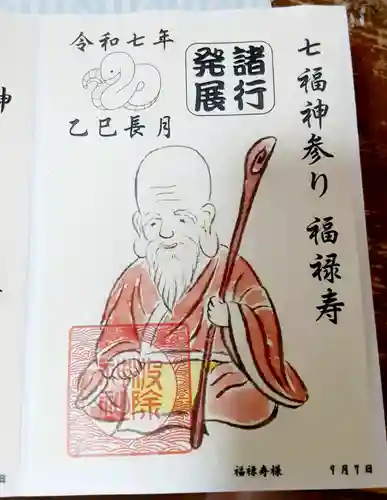 七福神参り 福禄寿
諸行
発展
令和七年
乙巳長月
福禄寿様
9月9日
神
日